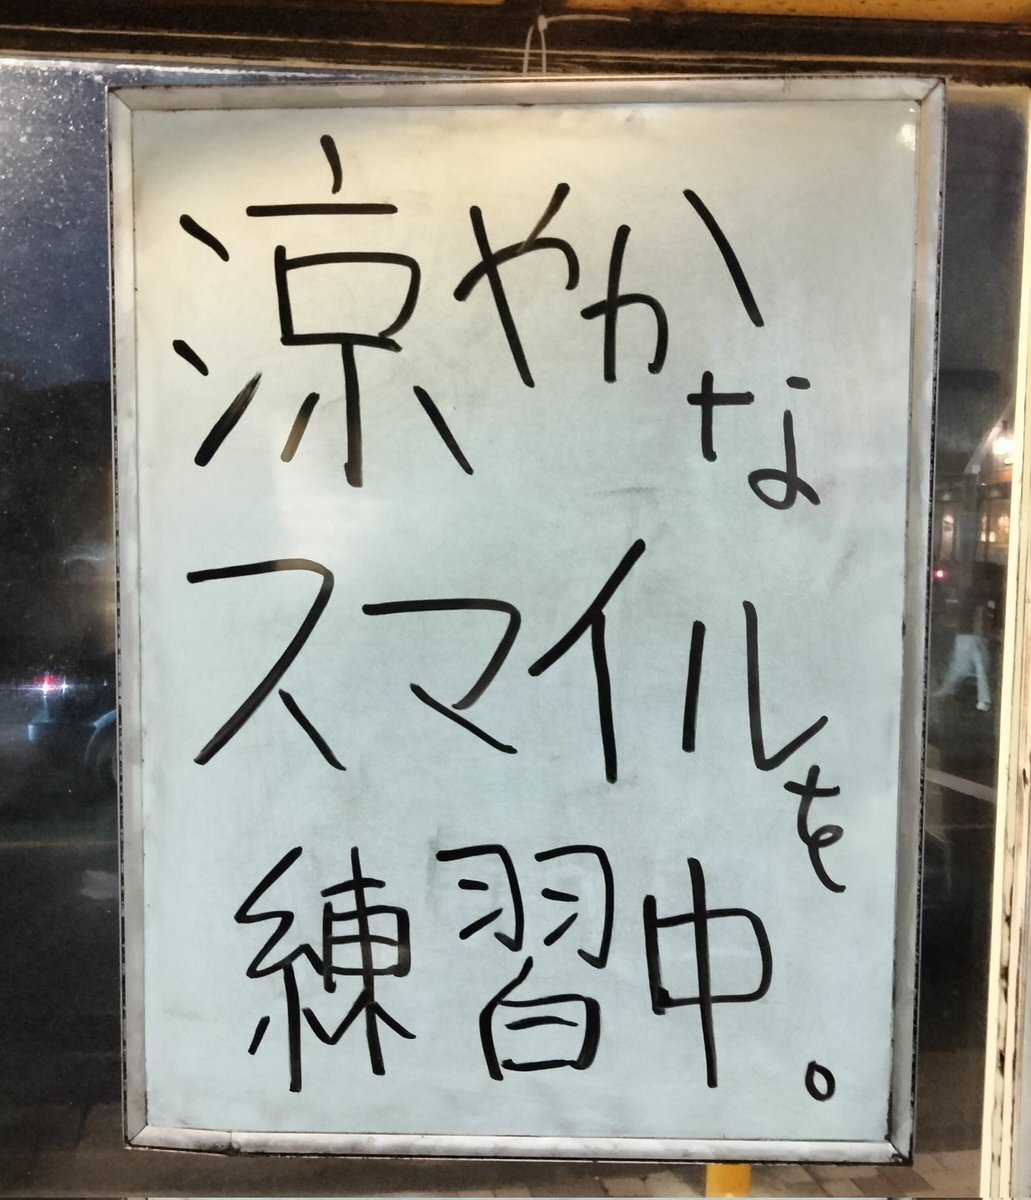 涼やかな
スマイルを
練習中。